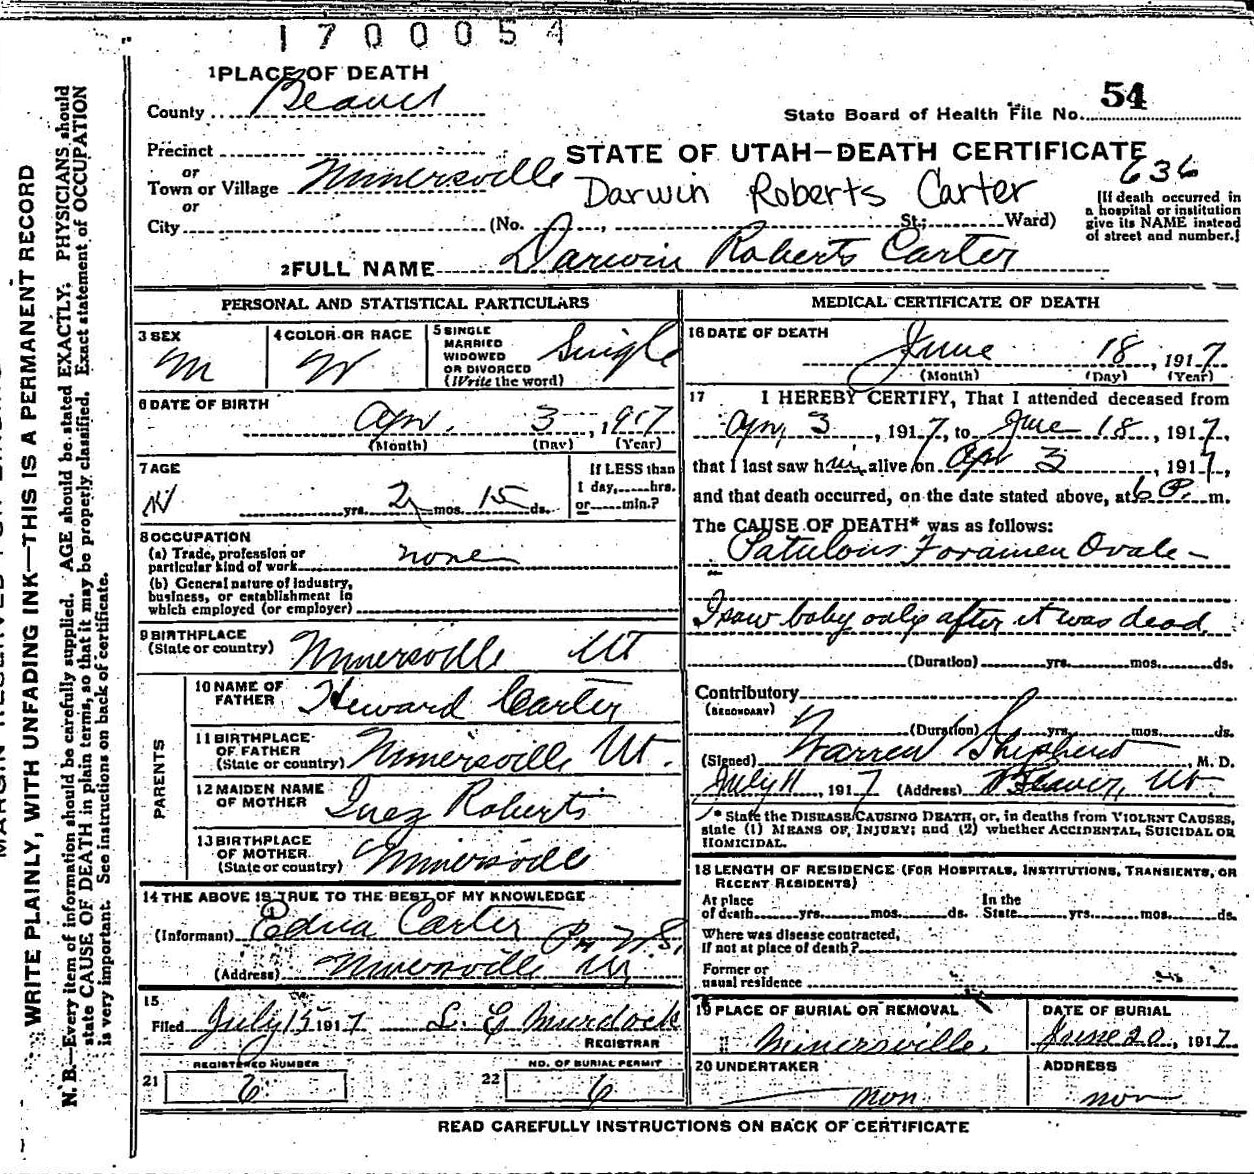 1700054
1 PLACE OF DEATH
County Beaver
State Board of Health File No. 54
Precinct
or
Town or Village Minersville
or
City (No. , St.; Ward)
STATE OF UTAH—DEATH CERTIFICATE
636
Darwin Roberts Carter
[If death occurred in
a hospital or institution
give its NAME instead
of street and number.]
2 FULL NAME Darwin Roberts Carter
PERSONAL AND STATISTICAL PARTICULARS
3 SEX
M
4 COLOR OR RACE
W
5 SINGLE
MARRIED
WIDOWED
OR DIVORCED
(Write the word)
Single
6 DATE OF BIRTH
Apr. 3, 1917
(Month) (Day) (Year)
7 AGE
yrs. 2 mos. 15 ds.
If LESS than
1 day, hrs.
or min.?
8 OCCUPATION
(a) Trade, profession or
particular kind of work none
(b) General nature of industry,
business, or establishment in
which employed (or employer)
9 BIRTHPLACE
(State or country) Minersville Ut
PARENTS
10 NAME OF
FATHER Heward Carter
11 BIRTHPLACE
OF FATHER
(State or country) Minersville Ut.
12 MAIDEN NAME
OF MOTHER Inez Roberts
13 BIRTHPLACE
OF MOTHER
(State or country) Minersville
14 THE ABOVE IS TRUE TO THE BEST OF MY KNOWLEDGE
(Informant) Edna Carter
(Address) Minersville Ut
15
Filed July 15 1917 L. E Murdock
REGISTRAR
REGISTERED NUMBER
21 6
NO. OF BURIAL PERMIT
22 6
MEDICAL CERTIFICATE OF DEATH
16 DATE OF DEATH
June 18, 1917
(Month) (Day) (Year)
17 I HEREBY CERTIFY, That I attended deceased from
Apr, 3, 1917, to June 18, 1917,
that I last saw him alive on Apr 3, 1917,
and that death occurred, on the date stated above, at 6 P. m.
The CAUSE OF DEATH* was as follows:
Patulous Foramen Ovale -
I saw baby only after it was dead.
(Duration) yrs. mos. ds.
Contributory
(SECONDARY)
(Duration) yrs. mos. ds.
(Signed) Warren Shepherd, M. D.
July 11, 1917 (Address) Beaver, Ut.
* State the DISEASE CAUSING DEATH, or, in deaths from VIOLENT CAUSES,
state (1) MEANS OF INJURY; and (2) whether ACCIDENTAL, SUICIDAL OR
HOMICIDAL.
18 LENGTH OF RESIDENCE (FOR HOSPITALS, INSTITUTIONS, TRANSIENTS, OR
RECENT RESIDENTS)
At place
of death yrs. mos. ds.
In the
State yrs. mos. ds.
Where was disease contracted,
If not at place of death?
Former or
usual residence
19 PLACE OF BURIAL OR REMOVAL
Minersville
DATE OF BURIAL
June 20, 1917
20 UNDERTAKER
non
ADDRESS
non
READ CAREFULLY INSTRUCTIONS ON BACK OF CERTIFICATE
WRITE PLAINLY, WITH UNFADING INK—THIS IS A PERMANENT RECORD
N. B.—Every item of information should be carefully supplied. AGE should be stated EXACTLY. PHYSICIANS should
state CAUSE OF DEATH in plain terms, so that it may be properly classified. Exact statement of OCCUPATION
is very important. See instructions on back of certificate.